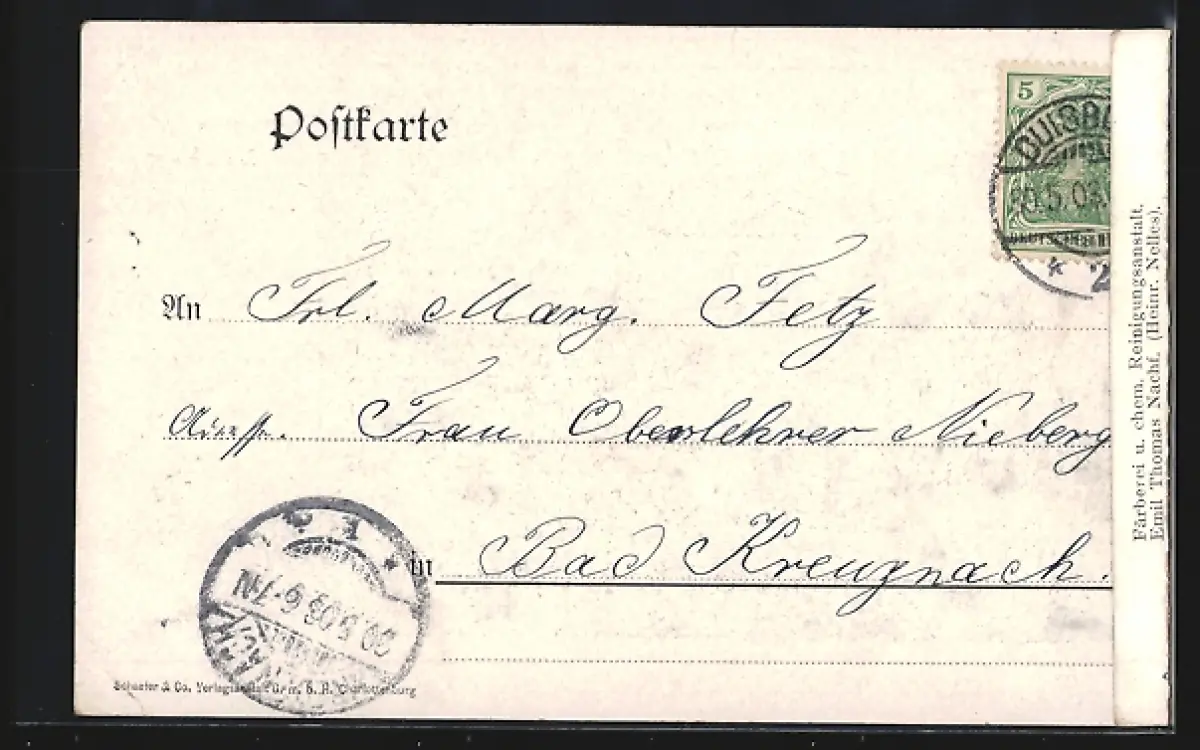 Postkarte
5
DUISBU
0.5.03.
DEUTSCHES R
* 2
An Frl. Marg. Fetz
Adresse. Frau Oberlehrer Nieberg
in Bad Kreuznach.
5.03 6-7N
Schaefer & Co. Verlagsanstalt G. m. b. H. Charlottenburg
Färberei u. chem. Reinigungsanstalt.
Emil Thomas Nachf. (Heinr. Nelles).